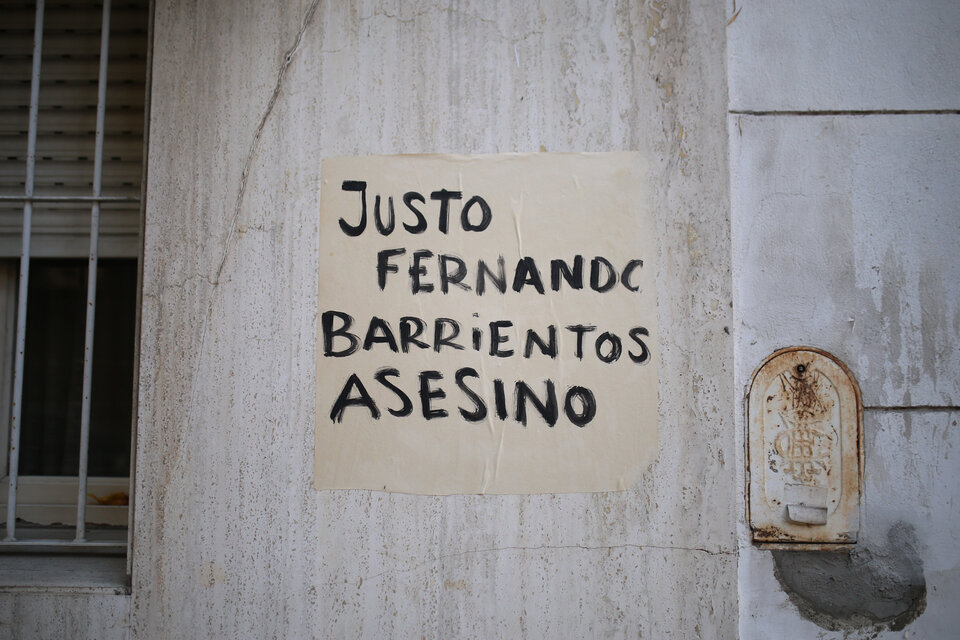 JUSTO
FERNANDO
BARRIENTOS
ASESINO